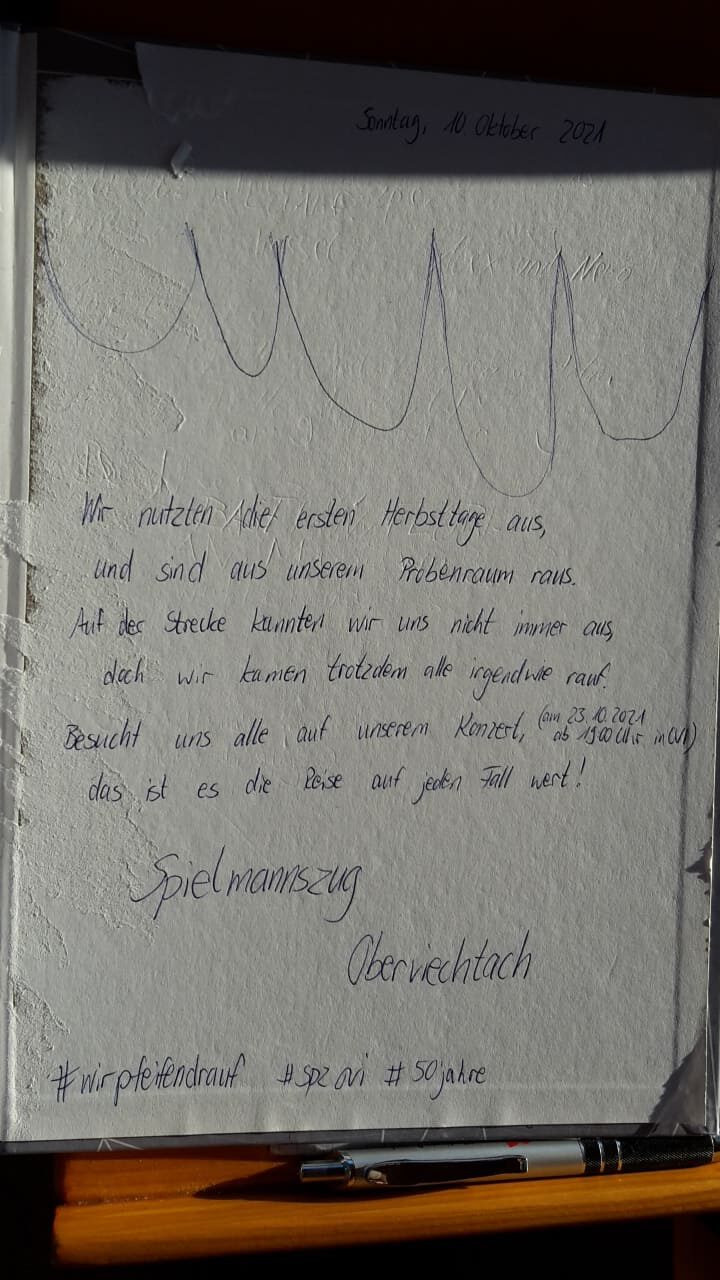 Sonntag, 10. Oktober 2021
Wir nutzten die ersten Herbsttage aus,
und sind aus unserem Probenraum raus.
Auf der Strecke kannten wir uns nicht immer aus,
doch wir kamen trotzdem alle irgendwie rauf.
Besucht uns alle auf unserem Konzert, (am 23.10.2021
ab 19:00 Uhr in OVI)
das ist es die Reise auf jeden Fall wert!
Spielmannszug
Oberviechtach
#wirpfeifendrauf #spzovi #50jahre